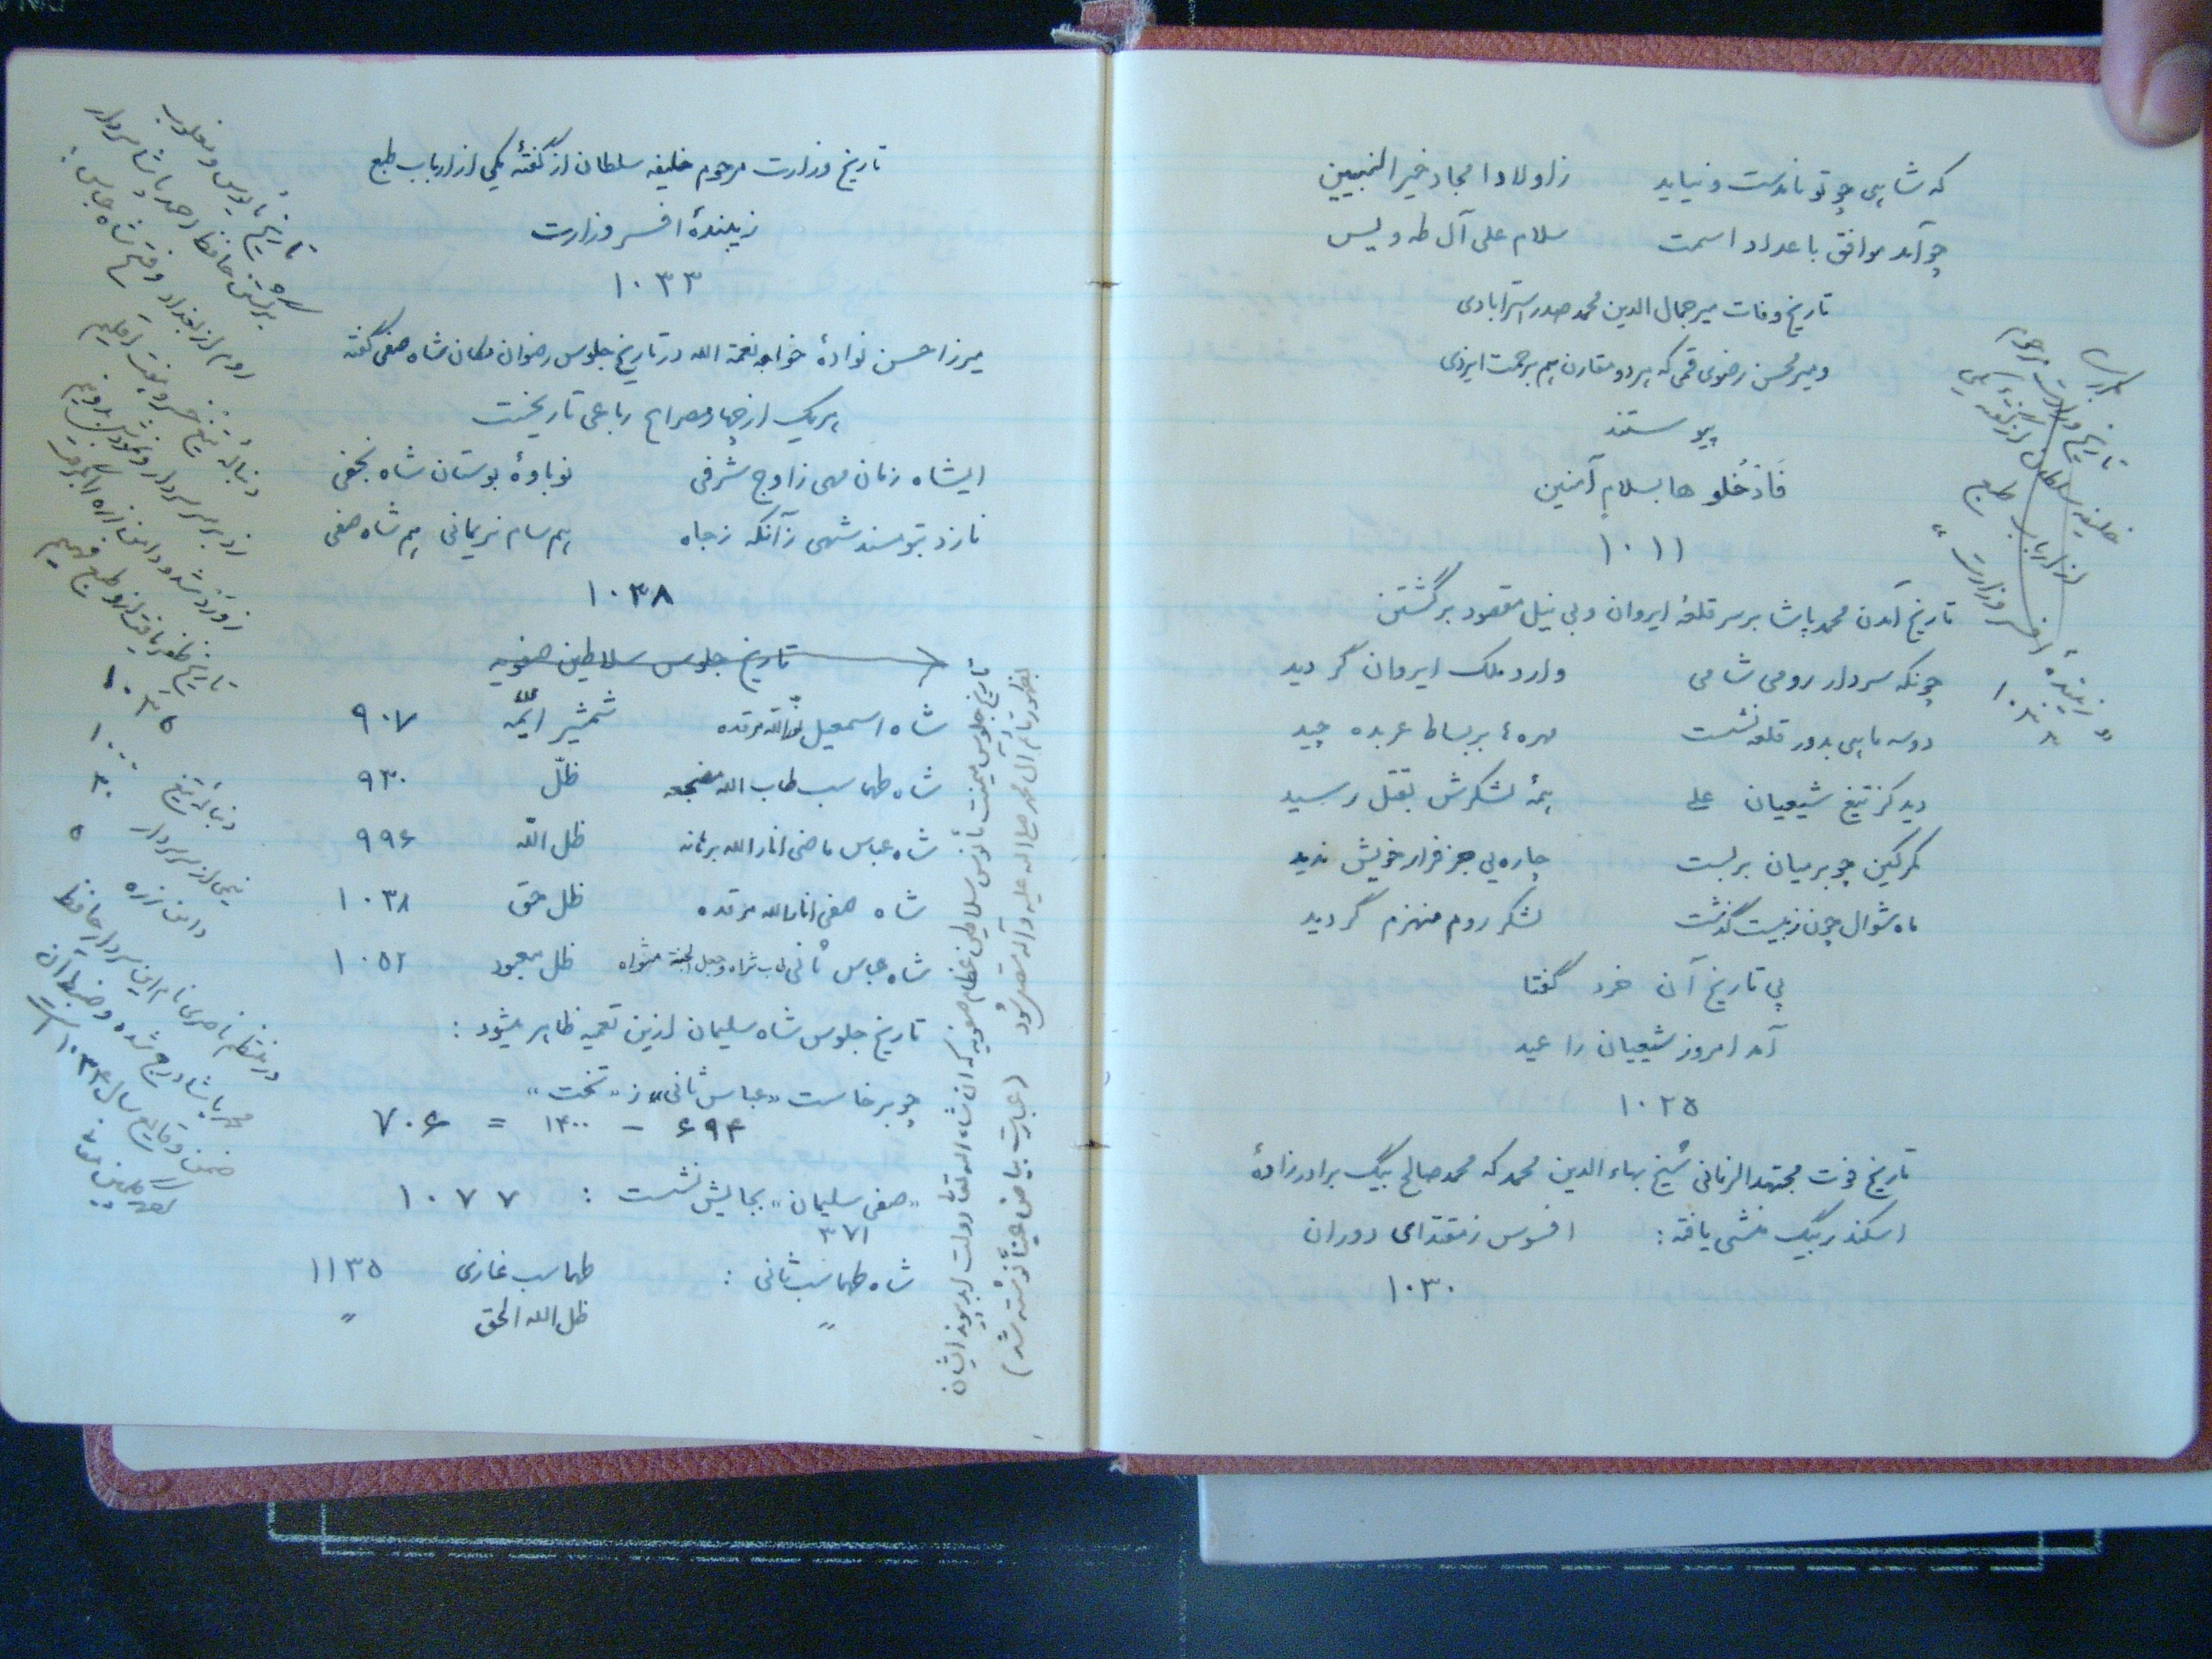 که شاهی چو تو نامدست و نیاید زاولاد امجاد خیر النبیین
چو آمد موافق با عداد اسمت سلام علی آل طه و یس
تاریخ وفات میر جمال الدین محمد صدر استرابادی
و میر محسن رضوی قمی که هر دو مقارن هم برحمت ایزدی
پیوستند
فَادْخُلوها بسلامٍ آمنین
۱۰۱۱
تاریخ آمدن محمد پاشا بر سر قلعهٔ ایروان و بی نیل مقصود برگشتن
چونکه سردار رومی شامی وارد ملک ایروان گردید
دو سه ماهی بدور قلعه نشست مهرهٔ بر بساط عربده چید
دید کز تیغ شیعیان علی همهٔ لشکرش بقتل رسید
کمرکین چو بر میان بربست چاره‌یی جز فرار خویش ندید
ماه شوال چون ز بیست گذشت لشکر روم منهزم گردید
پی تاریخ آن خرد گفتا
آمد امروز شیعیان را عید
۱۰۲۵
تاریخ فوت مجتهد الزمانی شیخ بهاء الدین محمد که محمد صالح بیگ برادرزادهٔ
اسکندر بیگ منشی یافته: افسوس ز مقتدای دوران
۱۰۳۰
تاریخ وزارت مرحوم
خلیفه سلطان از گفتهٔ یکی
از ارباب طبع
« زیبندهٔ افسر وزارت »
تاریخ وزارت مرحوم خلیفه سلطان از گفتهٔ یکی از ارباب طبع
زیبندهٔ افسر وزارت
۱۰۳۳
میرزا حسن نوادهٔ خواجه نعمة الله در تاریخ جلوس رضوان مکان شاه صفی گفته
هریک از چهار مصراع رباعی تاریخست
ایشاه زمان مهی ز اوج شرفی نوباوهٔ بوستان شاه نجفی
نازد بتو مسند شهی زآنکه زجاه هم سام نریمانی هم شاه صفی
۱۰۳۸
تاریخ جلوس سلاطین صفویه
شاه اسمعیل نورالله مرقده شمشیر ائمّه ۹۰۷
شاه طهماسب طاب الله مضجعه ظلّ ۹۳۰
شاه عباس ماضی انار الله برهانه ظل اللّه ۹۹۶
شاه صفی انارالله مرقده ظل حق ۱۰۳۸
شاه عباس ثانی طاب ثراه و جعل الجنة مثواه ظل معبود ۱۰۵۲
تاریخ جلوس شاه سلیمان ازین تعمیه ظاهر میشود:
چو برخاست «عباس ثانی» ز «تخت»
۶۹۴ - ۱۴۰۰ = ۷۰۶
«صفی سلیمان» بجایش نشست: ۱۰۷۷
۳۷۱
شاه طهماسب ثانی: طهماسب غازی ۱۱۳۵
〃 ظل الله الحق 〃
تاریخ جلوس میمنت مأنوس سلاطین عظام صفویه که ان شاء الله تعالی دولت ابد پیوند ایشان
بظهور قائم آل محمد صلی الله علیه و آله متصل شود (عبارت بیاض عیناً نوشته شد)
تاریخ مأیوس و مغلوب
برگشتن حافظ احمد پاشا سردار
روم از بغداد و فتح شاه عباس:
دنبالهٔ تیغ خسرو هفت اقلیم
زد بر سر سردار و نمودش بدو نیم
تاریخ ظفر یافت ازو طبع فهیم
۱۰۳۵
دنبالهٔ تیغ ۱۰۰۰
نیمی از سر سردار ۳۰
دامن زره ۵
در منتظم ناصری نام این سردار حافظ
محمد پاشا درج شده و ضبط آن
ضمن وقایع سال ۱۰۳۴ است